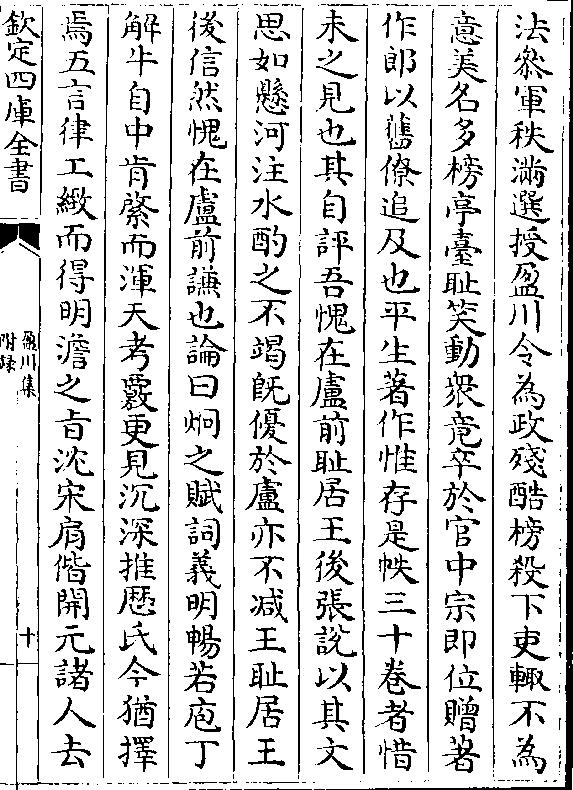 法叅軍秩滿選授盈川令為政殘酷榜殺下吏輙不為
意美名多榜亭臺耻笑動衆竟卒於官中宗即位贈著
作郎以舊僚追及也平生著作惟存是帙三十卷者惜
未之見也其自評吾愧在盧前耻居王後張說以其文
思如懸河注水酌之不竭旣優於盧亦不減王耻居王
後信然愧在盧前謙也論曰炯之賦詞義明暢若庖丁
解牛自中肯綮而渾天考覈更見沉深推歷氏今猶擇
焉五言律工緻而得明澹之㫖沈宋肩偕開元諸人去
欽定四庫全書
盈川集
附録
十